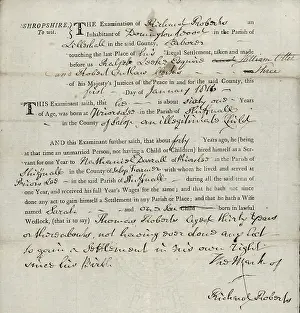 SHROPSHIRE,
To wit.
THE Examination of Richard Roberts
an Inhabitant of Donnington Wood in the Parish of
Lilleshall in the said County, Laborer
touching the Last Place of his Legal Settlement, taken and made
before us Ralph Leeke Esquire and William Otter
and Robert Outlaw
of his Majesty's Justices of the Peace in and for the said County, this
first Day of January 1816
THIS Examinant saith, that he is about sixty one Years
of Age, was born at in the Parish of Shiffnall
in the County of Salop an illegitimate Child
AND this Examinant further saith, that about forty Years ago, he (being
at that time an unmarried Person, not having a Child or Children) hired himself as a Ser-
vant for one Year to Nathaniel in the Parish of
Shiffnall in the County of Salop with whom he lived and served at
Priors Lee in the said Parish of Shiffnall during all the said term of
one Year, and received his full Year's Wages for the same; and that he hath not since
done any act to gain himself a Settlement in any Parish or Place; and that he hath a Wife
named Sarah and one born in lawful
Wedlock, (that is to say) Thomas Roberts aged thirty Years
or thereabouts, not having ever done any act
to gain a Settlement in his own right
since his Birth.
The Mark of
Richard Roberts